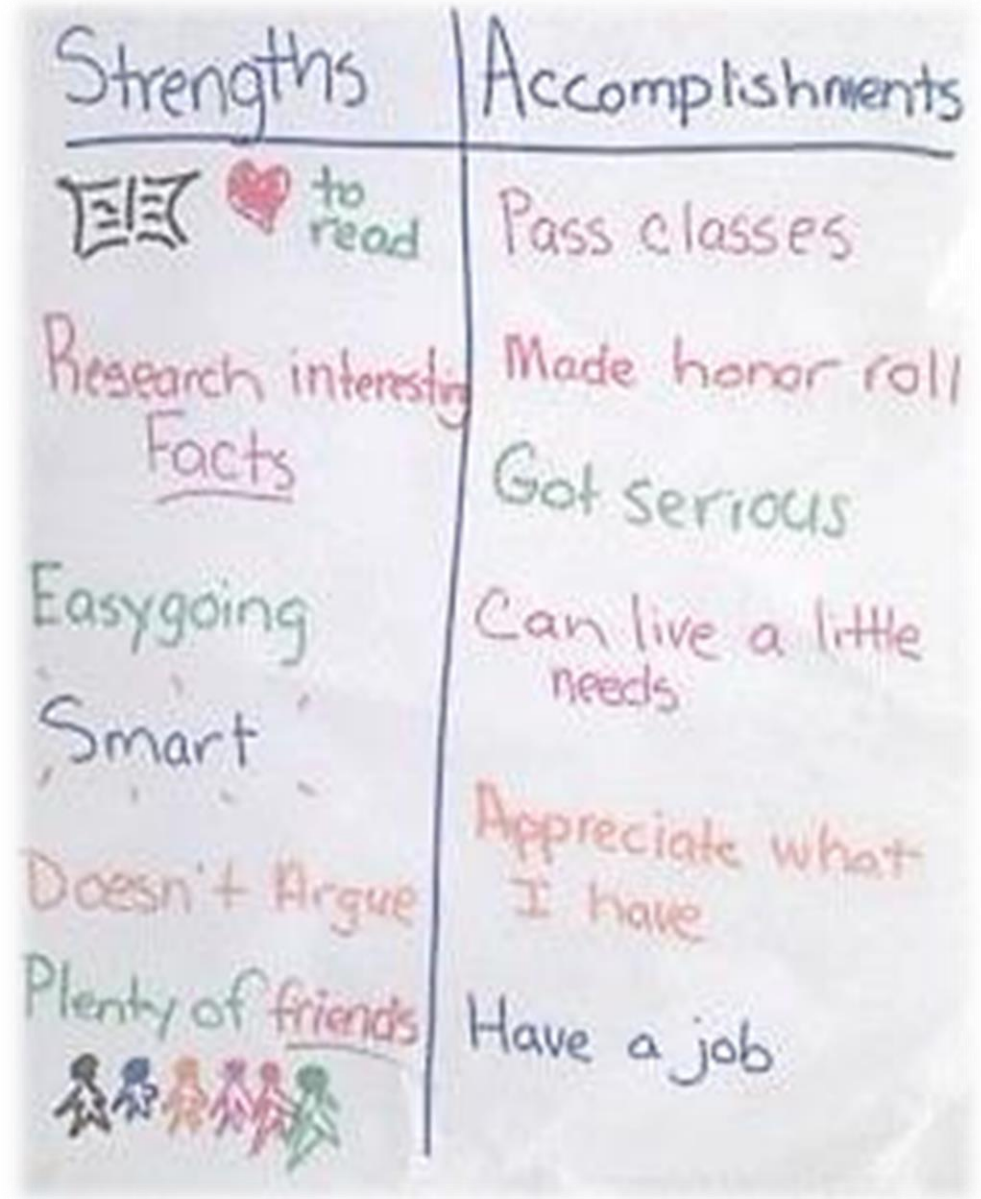 Strengths
to
read
Research interesting
Facts
Easygoing
Smart
Doesn't Argue
Plenty of friends
Accomplishments
Pass classes
Made honor roll
Got serious
Can live a little
needs
Appreciate what
I have
Have a job